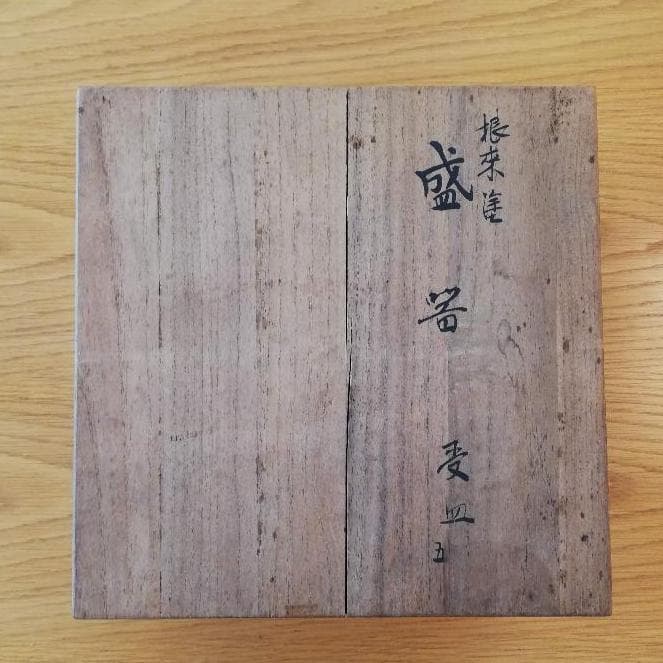 根来塗
盛器
受皿
五